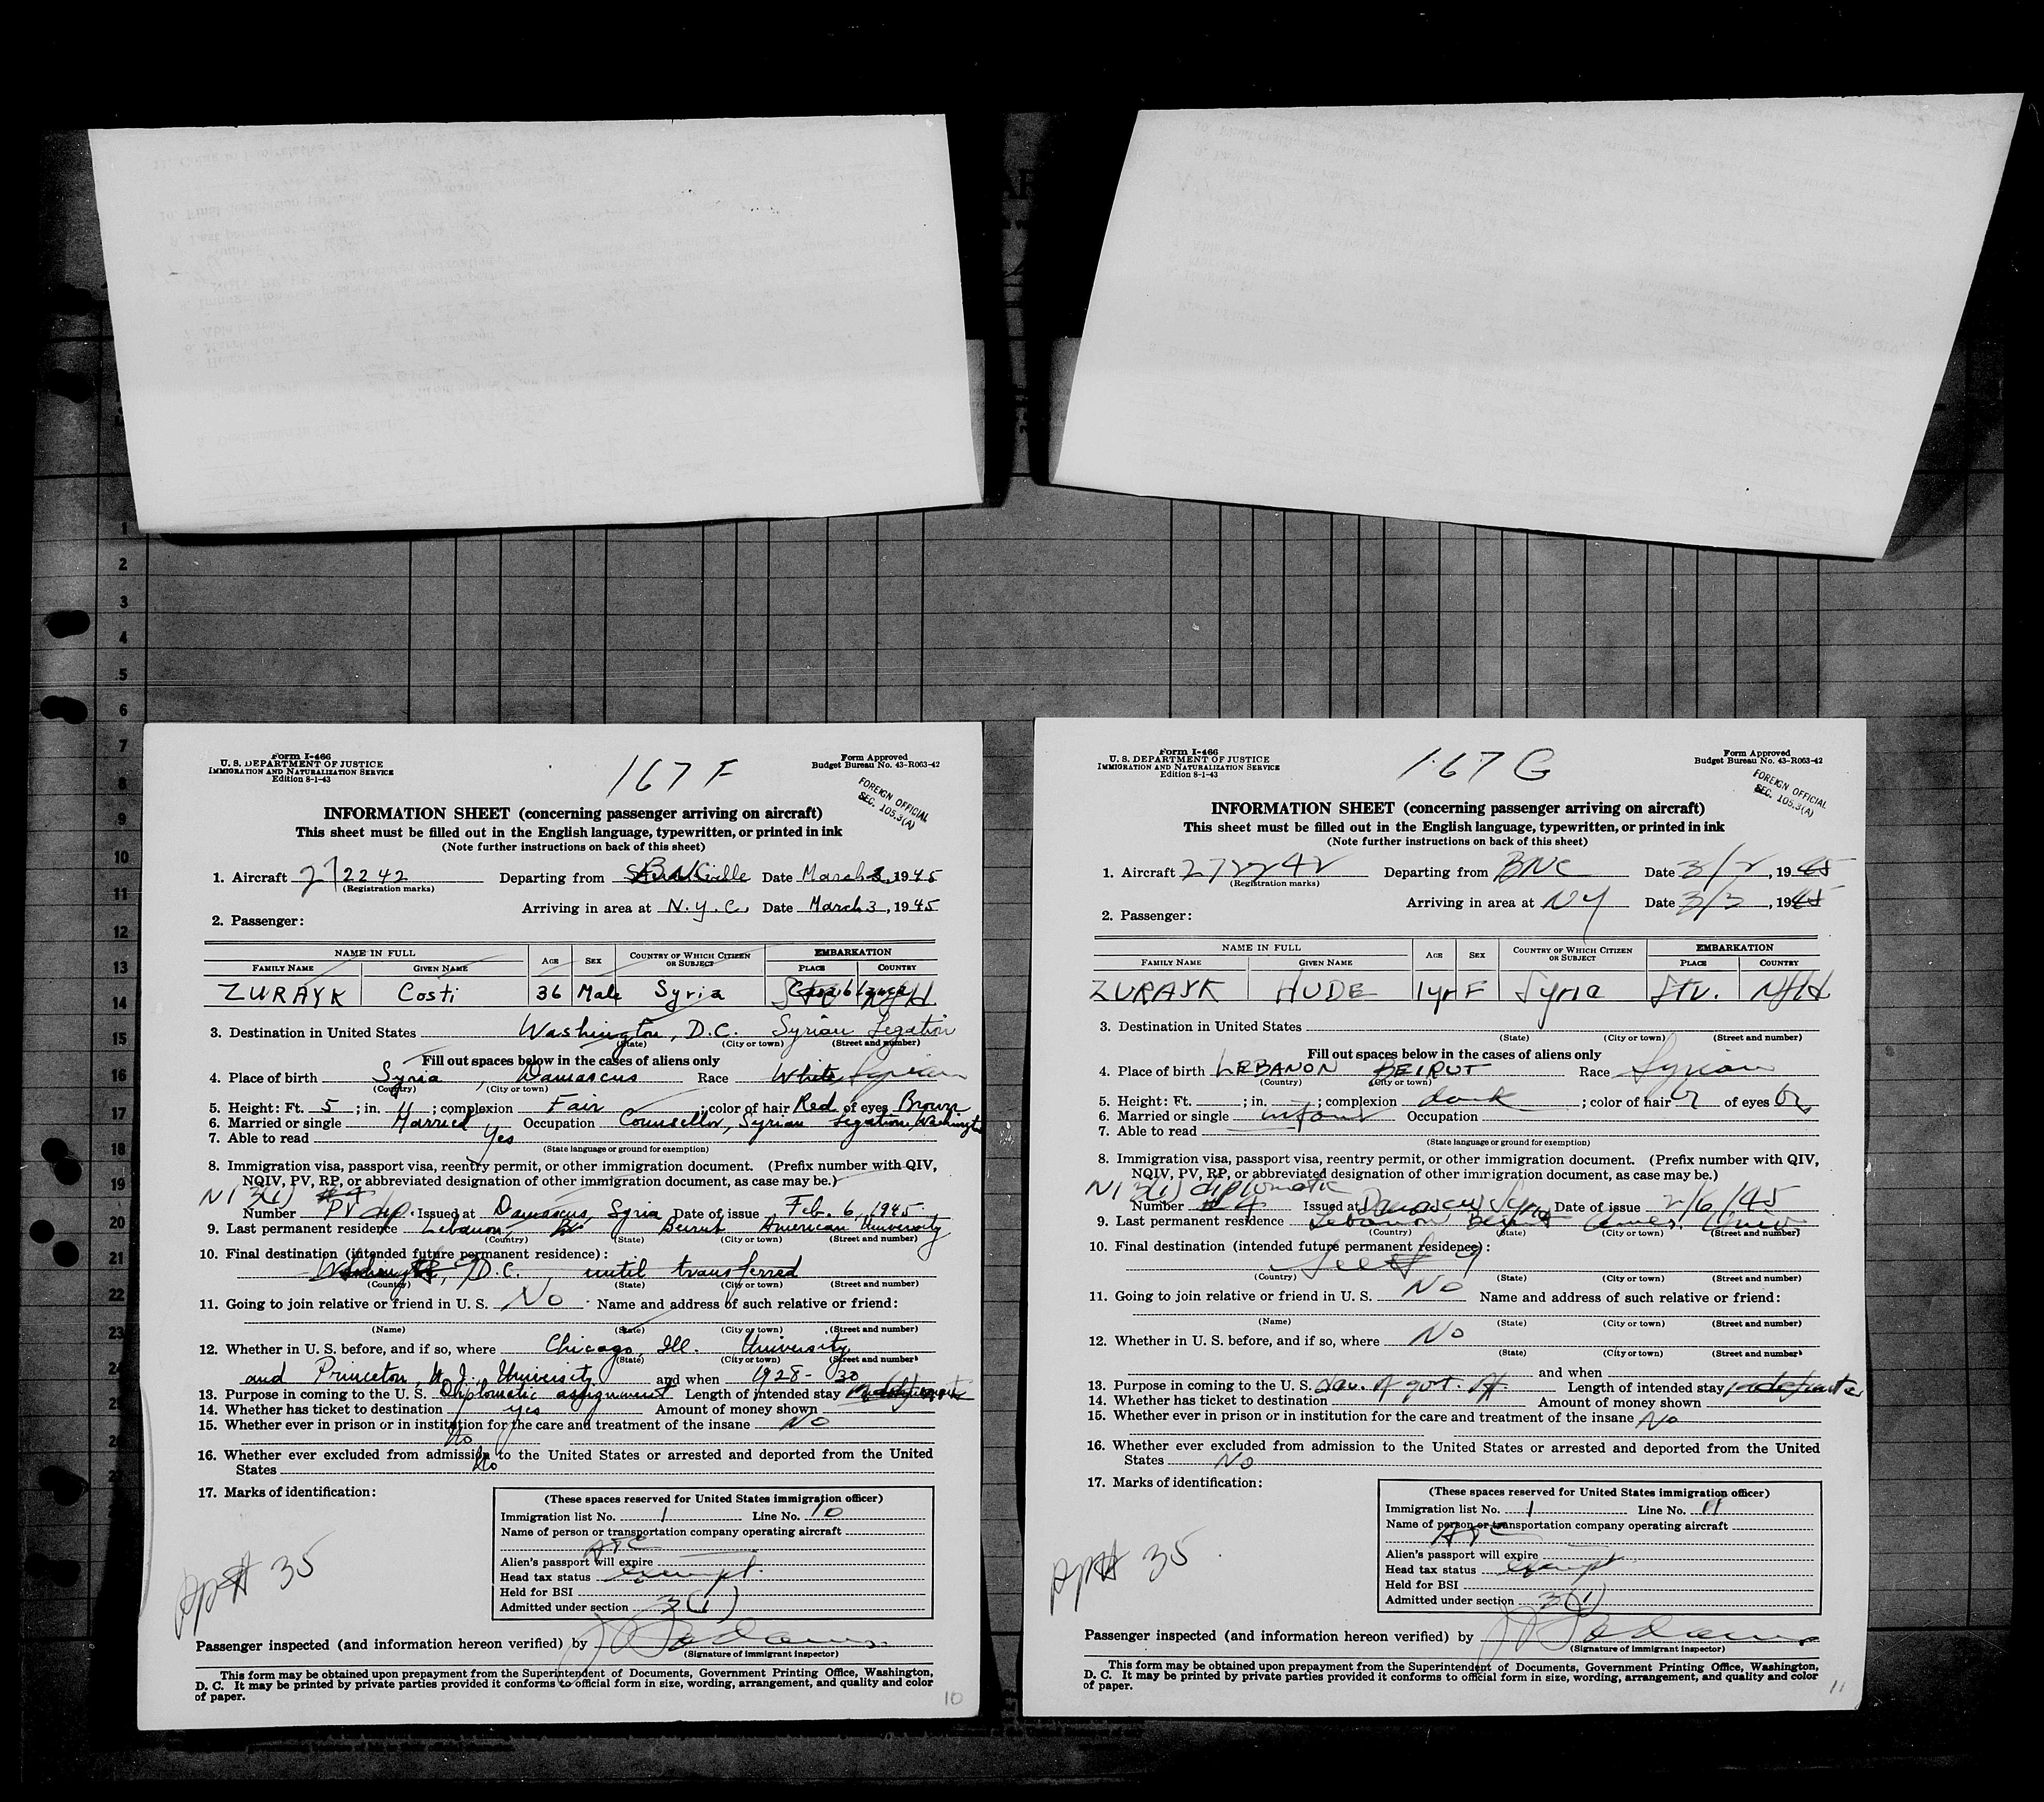 1
2
3
4
5
6
7
8
9
10
11
12
13
14
15
16
17
18
19
20
21
22
23
Form I-466
U. S. DEPARTMENT OF JUSTICE
IMMIGRATION AND NATURALIZATION SERVICE
Edition 8-1-43
167 F
Form Approved
Budget Bureau No. 43-R063-42
FOREIGN OFFICIAL
SEC. 105.3(A)
INFORMATION SHEET (concerning passenger arriving on aircraft)
This sheet must be filled out in the English language, typewritten, or printed in ink
(Note further instructions on back of this sheet)
1. Aircraft 272242 Departing from Date March 2, 1945
(Registration marks)
Arriving in area at N.Y.C. Date March 3, 1945
2. Passenger:
NAME IN FULL AGE SEX COUNTRY OF WHICH CITIZEN OR SUBJECT EMBARKATION
FAMILY NAME GIVEN NAME PLACE COUNTRY
ZURAYK Costi 36 Male Syria Casablanca
3. Destination in United States Washington, D.C. Syrian Legation
(State) (City or town) (Street and number)
Fill out spaces below in the cases of aliens only
4. Place of birth Syria, Damascus Race White Syrian
(Country) (City or town)
5. Height: Ft. 5; in. 11; complexion Fair; color of hair Red of eyes Brown
6. Married or single Married Occupation Counsellor, Syrian Legation, Washington
7. Able to read Yes
(State language or ground for exemption)
8. Immigration visa, passport visa, reentry permit, or other immigration document. (Prefix number with QIV,
NQIV, PV, RP, or abbreviated designation of other immigration document, as case may be.)
NI 3(1) #4
Number PV dip. Issued at Damascus, Syria Date of issue Feb. 6, 1945
9. Last permanent residence Lebanon, Beirut American University
(Country) (State) (City or town) (Street and number)
10. Final destination (intended future permanent residence):
Washington, D.C. until transferred
(Country) (State) (City or town) (Street and number)
11. Going to join relative or friend in U. S. No Name and address of such relative or friend:
(Name) (State) (City or town) (Street and number)
12. Whether in U. S. before, and if so, where Chicago, Ill. University
(State) (City or town) (Street and number)
and Princeton, N.J. University and when 1928-30
13. Purpose in coming to the U. S. Diplomatic assignment Length of intended stay
14. Whether has ticket to destination yes Amount of money shown
15. Whether ever in prison or in institution for the care and treatment of the insane No
No
16. Whether ever excluded from admission to the United States or arrested and deported from the United
States No
17. Marks of identification:
(These spaces reserved for United States immigration officer)
Immigration list No. 1 Line No. 10
Name of person or transportation company operating aircraft
ATC
Alien's passport will expire
Head tax status exempt
Held for BSI
Admitted under section 3(1)
pp# 35
Passenger inspected (and information hereon verified) by
(Signature of immigrant inspector)
This form may be obtained upon prepayment from the Superintendent of Documents, Government Printing Office, Washington,
D. C. It may be printed by private parties provided it conforms to official form in size, wording, arrangement, and quality and color
of paper.
10
Form I-466
U. S. DEPARTMENT OF JUSTICE
IMMIGRATION AND NATURALIZATION SERVICE
Edition 8-1-43
167 G
Form Approved
Budget Bureau No. 43-R063-42
FOREIGN OFFICIAL
SEC. 105.3(A)
INFORMATION SHEET (concerning passenger arriving on aircraft)
This sheet must be filled out in the English language, typewritten, or printed in ink
(Note further instructions on back of this sheet)
1. Aircraft 272242 Departing from BNC Date 3/2, 1945
(Registration marks)
Arriving in area at NY Date 3/3, 1945
2. Passenger:
NAME IN FULL AGE SEX COUNTRY OF WHICH CITIZEN OR SUBJECT EMBARKATION
FAMILY NAME GIVEN NAME PLACE COUNTRY
ZURAYK HUDE 1yr F Syria Stv. Nfld
3. Destination in United States
(State) (City or town) (Street and number)
Fill out spaces below in the cases of aliens only
4. Place of birth LEBANON BEIRUT Race Syrian
(Country) (City or town)
5. Height: Ft. ; in. ; complexion dark; color of hair br of eyes br
6. Married or single infant Occupation
7. Able to read
(State language or ground for exemption)
8. Immigration visa, passport visa, reentry permit, or other immigration document. (Prefix number with QIV,
NQIV, PV, RP, or abbreviated designation of other immigration document, as case may be.)
NI 3(1) diplomatic
Number #4 Issued at Damascus Syria Date of issue 2/6/45
9. Last permanent residence Lebanon Beirut Amer. Univ
(Country) (State) (City or town) (Street and number)
10. Final destination (intended future permanent residence):
See # 9
(Country) (State) (City or town) (Street and number)
11. Going to join relative or friend in U. S. No Name and address of such relative or friend:
(Name) (State) (City or town) (Street and number)
12. Whether in U. S. before, and if so, where No
(State) (City or town) (Street and number)
and when
13. Purpose in coming to the U. S. dau. of govt. off. Length of intended stay indefinite
14. Whether has ticket to destination Amount of money shown
15. Whether ever in prison or in institution for the care and treatment of the insane No
16. Whether ever excluded from admission to the United States or arrested and deported from the United
States No
17. Marks of identification:
(These spaces reserved for United States immigration officer)
Immigration list No. 1 Line No. 11
Name of person or transportation company operating aircraft
ATC
Alien's passport will expire
Head tax status exempt
Held for BSI
Admitted under section 3(1)
pp# 35
Passenger inspected (and information hereon verified) by
(Signature of immigrant inspector)
This form may be obtained upon prepayment from the Superintendent of Documents, Government Printing Office, Washington,
D. C. It may be printed by private parties provided it conforms to official form in size, wording, arrangement, and quality and color
of paper.
11